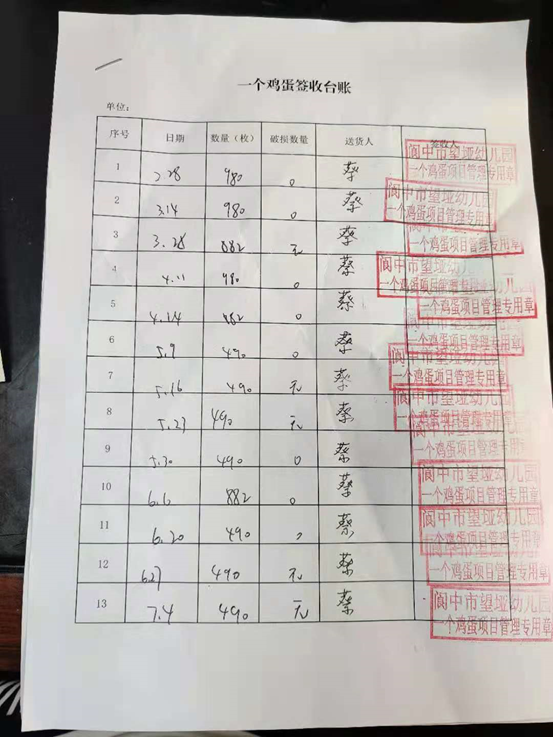 一个鸡蛋签收台账
单位：
序号 日期 数量（枚） 破损数量 送货人 签收人
1 2.28 980 0 蔡
阆中市望垭幼儿园
一个鸡蛋项目管理专用章
2 3.14 980 0 蔡
阆中市望垭幼儿园
一个鸡蛋项目管理专用章
3 3.28 882 无 蔡
一个鸡蛋项目管理专用章
4 4.11 980 0 蔡
阆中市望垭幼儿园
一个鸡蛋项目管理专用章
5 4.24 882 0 蔡
一个鸡蛋项目管理专用章
6 5.9 490 0 蔡
一个鸡蛋项目管理专用章
7 5.16 490 无 蔡
阆中市望垭幼儿园
一个鸡蛋项目管理专用章
8 5.23 490 无 蔡
阆中市望垭幼儿园
一个鸡蛋项目管理专用章
9 5.30 490 0 蔡
一个鸡蛋项目管理专用章
10 6.6 882 0 蔡
阆中市望垭幼儿园
一个鸡蛋项目管理专用章
11 6.20 490 0 蔡
阆中市望垭幼儿园
一个鸡蛋项目管理专用章
12 6.27 490 无 蔡
一个鸡蛋项目管理专用章
13 7.4 490 无 蔡
阆中市望垭幼儿园
一个鸡蛋项目管理专用章